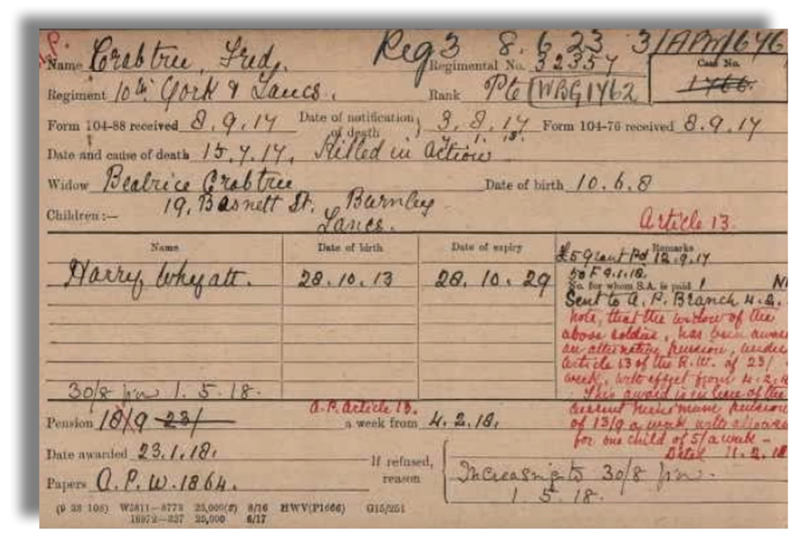 Reg 3 8.6.23 3/APW1646
Name Crabtree, Fred. Regimental No. 32354 Case No.
Regiment 10th York & Lancs. Rank Pte WBG1462 1766
Form 104-88 received 8.9.17 Date of notification of death 3.8.17 Form 104-76 received 8.9.17
Date and cause of death 15.7.17. Killed in action
Widow Beatrice Crabtree Date of birth 10.6.8
Children:— 19, Basnett St. Burnley
Lancs. Article 13.
Name Date of birth Date of expiry Remarks
£5 Grant Pd 12.9.17
50 F 9.1.18.
Harry Whyatt. 28.10.13 28.10.29 No. for whom S.A. is paid 1
Sent to A.P. Branch 4.2.
Note, that the widow of the
above soldier, has been awar
an alternative pension, under
Article 13 of the R.W. of 23/
week, with effect from 4.2.18
This award is in lieu of the
minimum pension
of 13/9 a week, with allowance
for one child of 5/ a week —
Dated 11.2.18
30/8 p.w 1.5.18.
A.P. Article 13.
Pension 18/9 23/ a week from 4.2.18.
Date awarded 23.1.18. If refused, reason Increasing to 30/8 p.w.
1.5.18.
Papers A.P.W.1864.
(9 28 108) W2811—8773 25,000(2) 8/16 HWV(P1666) G15/251
16972—827 25,000 6/17